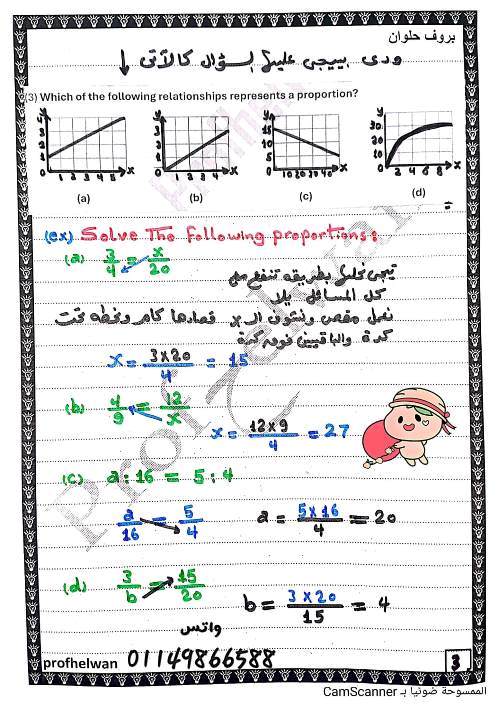 بروف حلوان
ودى بييجى عليها سؤال كالآتى ↓
(3) Which of the following relationships represents a proportion?
y 4 3 2 1 0 1 2 3 4 5 x
y 4 3 2 1 0 1 2 3 4 5 x
y 15 10 5 0 10 20 30 40 x
y 30 20 10 0 2 4 6 8 x
(a) (b) (c) (d)
(ex) Solve The following proportions:
(a) 3/4 = x/20
تيجى نحل بطريقه تنفع مع
كل المسائل يلا
نعمل مقص ونشوف الـ x قصادها كام ونحطه تحت
كدة والباقيين فوق كدة
x = 3×20/4 = 15
(b) 4/9 = 12/x
x = 12×9/4 = 27
(c) a : 16 = 5 : 4
a/16 = 5/4 a = 5×16/4 = 20
(d) 3/b = 15/20
b = 3×20/15 = 4
واتس
profhelwan 01149866588
3
الممسوحة ضوئيا بـ CamScanner
Prof.Helwan